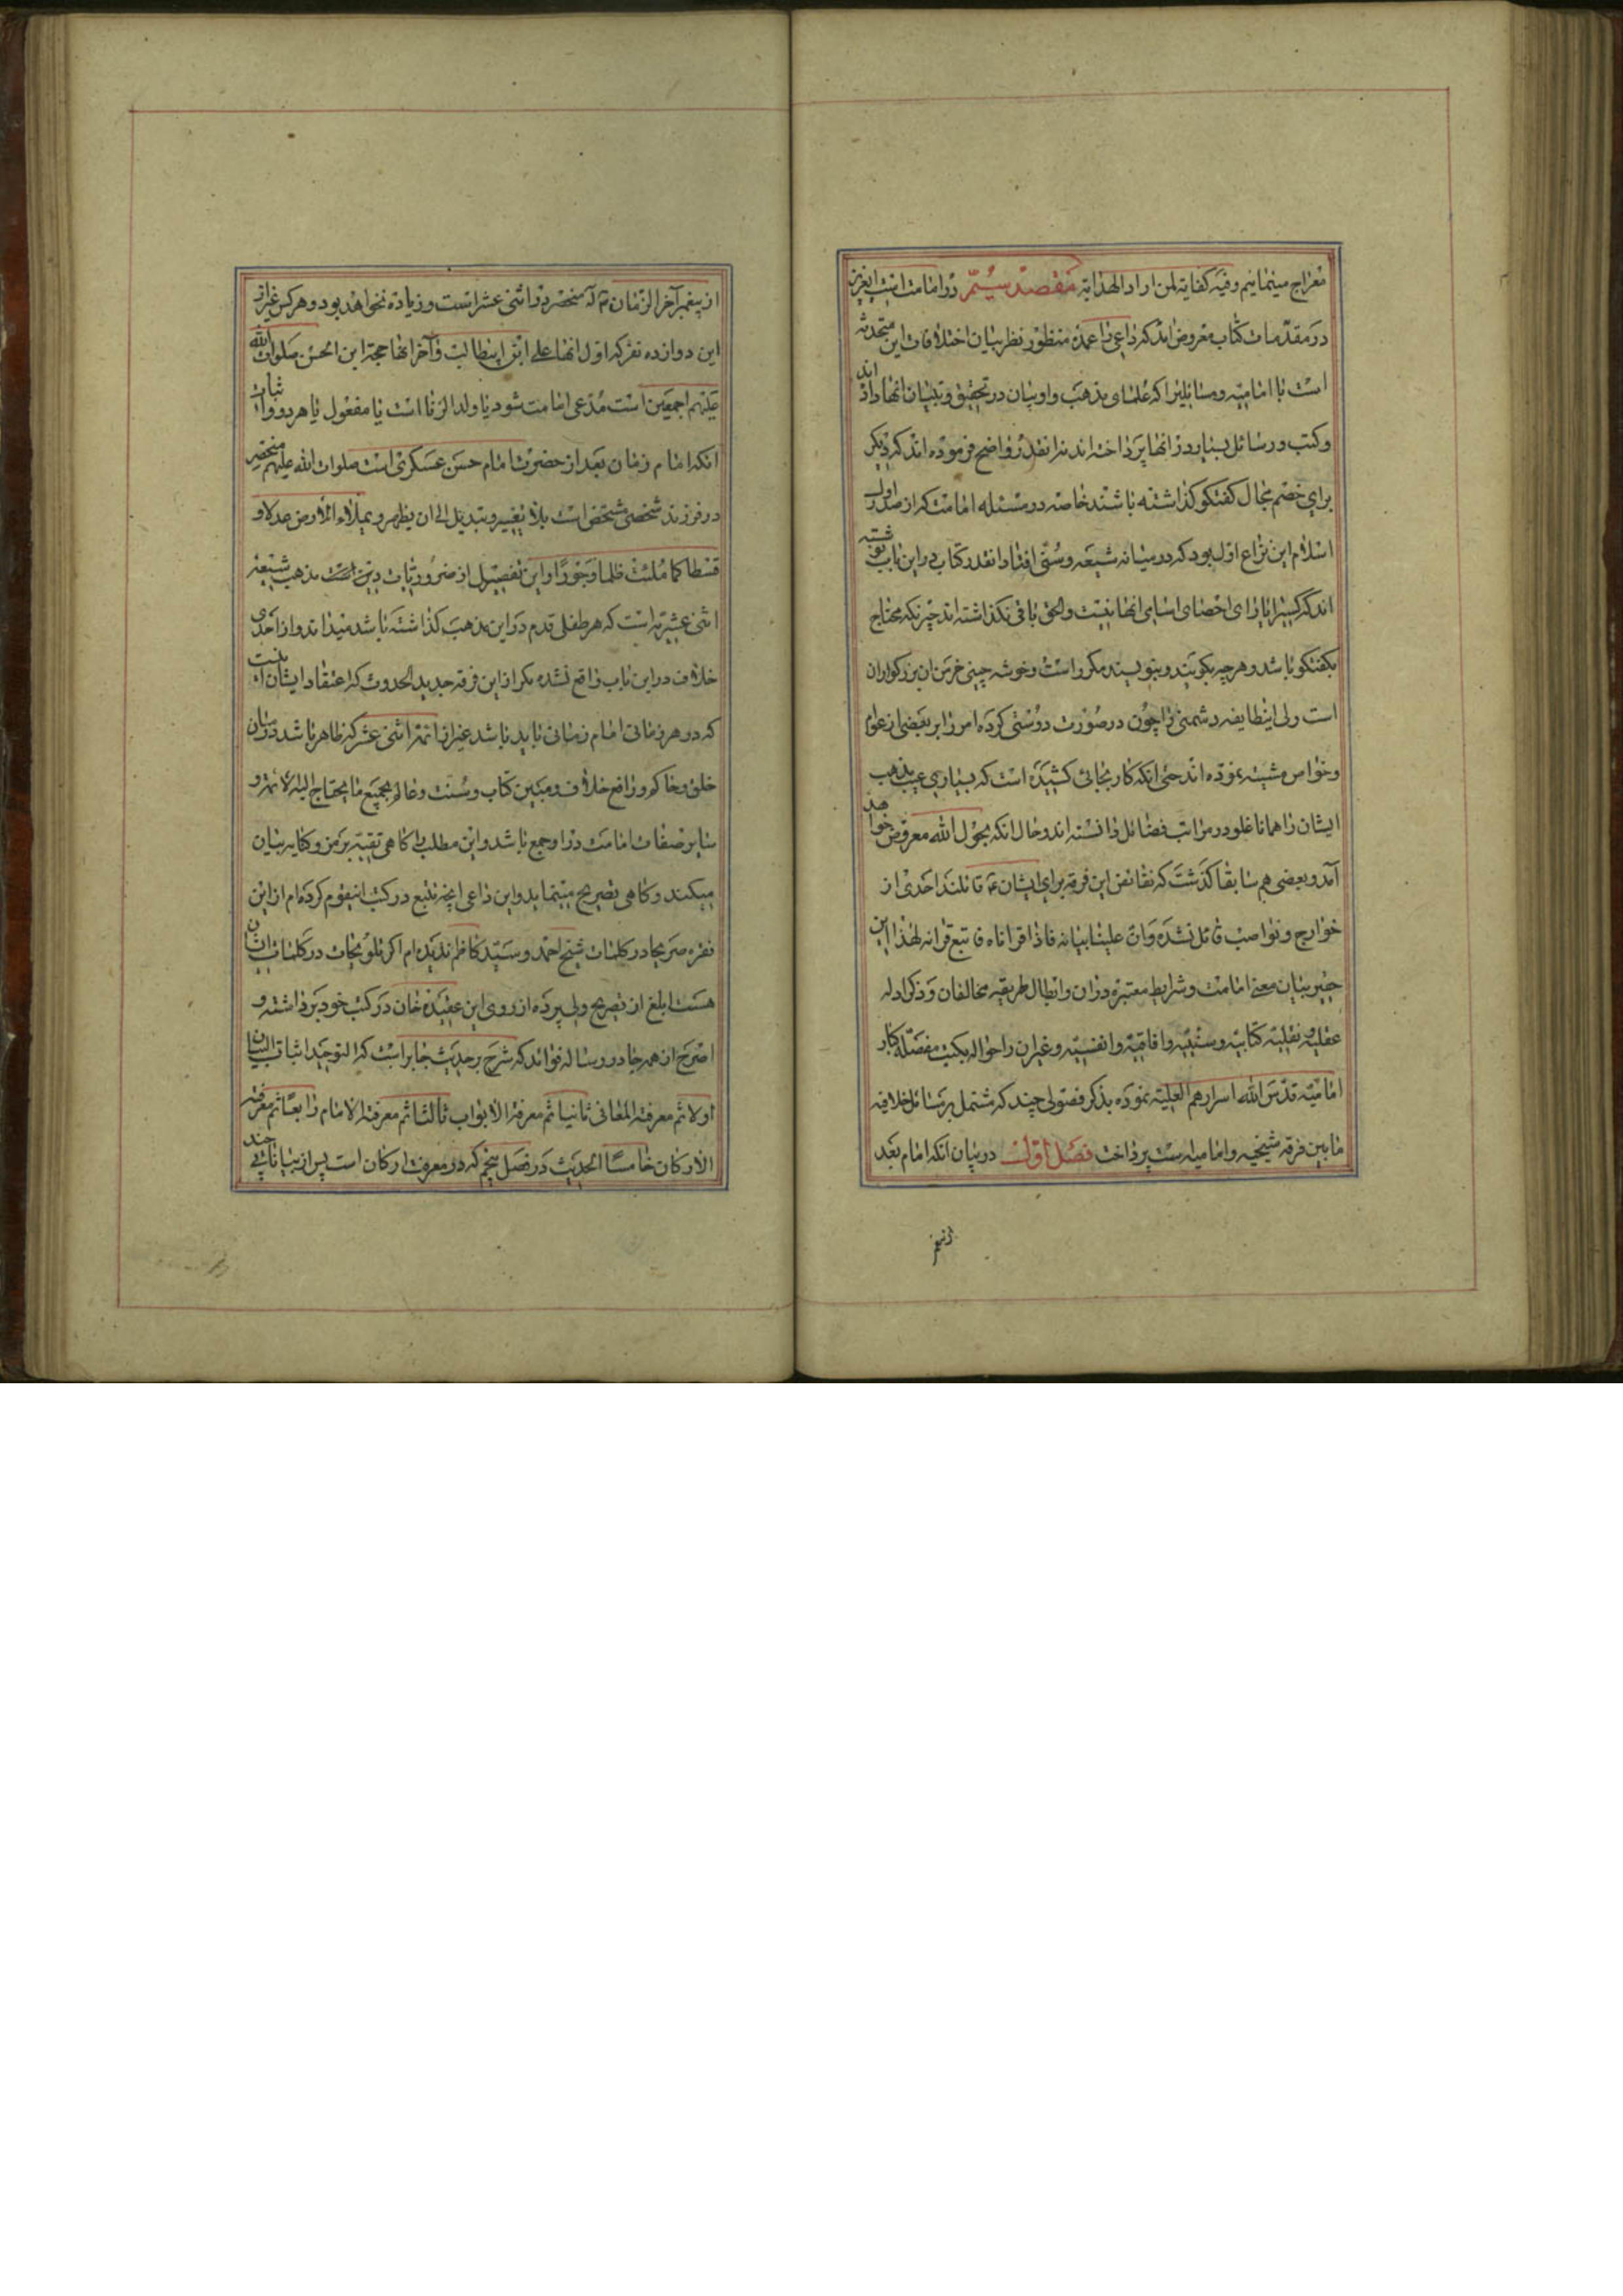 معراج مینمائیم وفیه کفایة لمن اراد الهدایة مقصد سیّم در امامت است ایعزیز
در مقدّمات کتاب معروض اند که داعی را عمده منظور نظر بیان اختلافات این متحدثه
است با امامیّه و مسائلیرا که علمای مذهب و ادیان در تحقیق و تبیان آنها داد
و کتب و رسائل بسیار در آنها پرداخته اند نه انقدر واضح فرموده اند که دیگر
برای خصم مجال گفتگو گذاشته باشند خاصه در مسئله امامت که از صدر اول
اسلام این نزاع اول بود که در میانه شیعه و سنّی افتاد انقدر کتاب در این باب نوشته
اند که کسیرا یارای احصای اسامی انها نیست و الحق باقی نگذاشته اند چیزیکه محتاج
بگفتگو باشد و هر چه بگویند و بنویسند مکرر است و خوشه چینی خرمن ان بزرگواران
است ولی اینطایفه دشمنی را چون در صورت دوستی کرده امر را بر بعضی از عوام
و خواص مشتبه نموده اند حتی انکه کار بجائی کشیده است که بسیاری عیب مذهب
ایشان را همانا غلو در مراتب فضائل دانسته اند و حال انکه بحول الله معروض خواهد
آمد و بعضی هم سابقا گذشت که نقائص این فرقه برای ایشان ع قائلند احدی از
خوارج و نواصب قائل نشده وانّ علینا بیانه فاذا قراناه فاتبع قرانه لهذا این
حقیر بیان معنی امامت و شرایط معتبره در ان و ابطال طریقه مخالفان و ذکر ادله
عقلیه و نقلیه کتابیه و سنّتیه و افاقیّه و انفسیّه و غیر ان را حواله بکتب مفصّله کبار
امامیّه قدّس الله اسرارهم العلیّة نموده بذکر فصولی چند که مشتمل بر مسائل خلافیه
مابین فرقه شیخیه و امامیه است پرداخت فصل اول در بیان انکه امام بعد
از پیغمبر آخر الزمان ص منحصر در اثنی عشر است و زیاده نخواهد بود و هر کس غیر از
این دوازده نفر که اول انها علی ابن ابیطالب و آخر انها حجة ابن الحسن صلوات الله
علیهم اجمعین است مدّعی امامت شود یا ولد الزنا است یا مفعول یا هر دو و اثبات
انکه امام زمان بعد از حضرت امام حسن عسکری است صلوات الله علیهم منحصر
در فرزند شخصی مشخص است بلا تغییر و تبدیل الی ان یظهر و یملاء الارض عدلا و
قسطا کما ملئت ظلما و جورًا و این تفصیل از ضروریات دین است مذهب شیعه
اثنی عشریّه است که هر طفلی قدم در این مذهب گذاشته باشد میداند و از احدی
خلاف در این باب واقع نشده مگر از این فرقه جدید الحدوث که اعتقاد ایشان انست
که در هر زمانی امام زمانی باید باشد غیر از ائمه اثنی عشر که ظاهر باشد در میان
خلق و حاکم و رافع خلاف و مبین کتاب و سنت و عالم بجمیع ما یحتاج الیه الامّة و
سایر صفات امامت در او جمع باشد و این مطلب را گاهی تقیّة برمز و کنایه بیان
میکنند و گاهی تصریح مینماید و این داعی انچه تتبع در کتب اینقوم کرده ام از این
فقره صریحا در کلمات شیخ احمد و سیّد کاظم ندیده ام اگر تلویحات در کلمات ایشان
هست ابلغ از تصریح ولی پرده از روی این عقیده خان در کتب خود برداشته و
اصرح از همه جا در رساله فوائد که شرح بر حدیث جابر است که التوحید اثبات البیان
اولا ثم معرفة المعانی ثانیا ثم معرفة الابواب ثالثا ثم معرفة الامام رابعًا ثم معرفة
الارکان خامسًا الحدیث در فصل پنجم که در معرفت ارکان است پس از بیانات چند